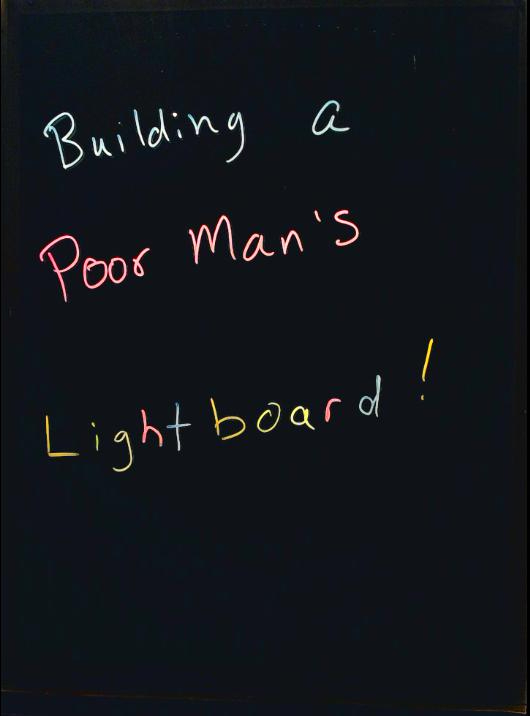 Building a
Poor Man's
Lightboard!